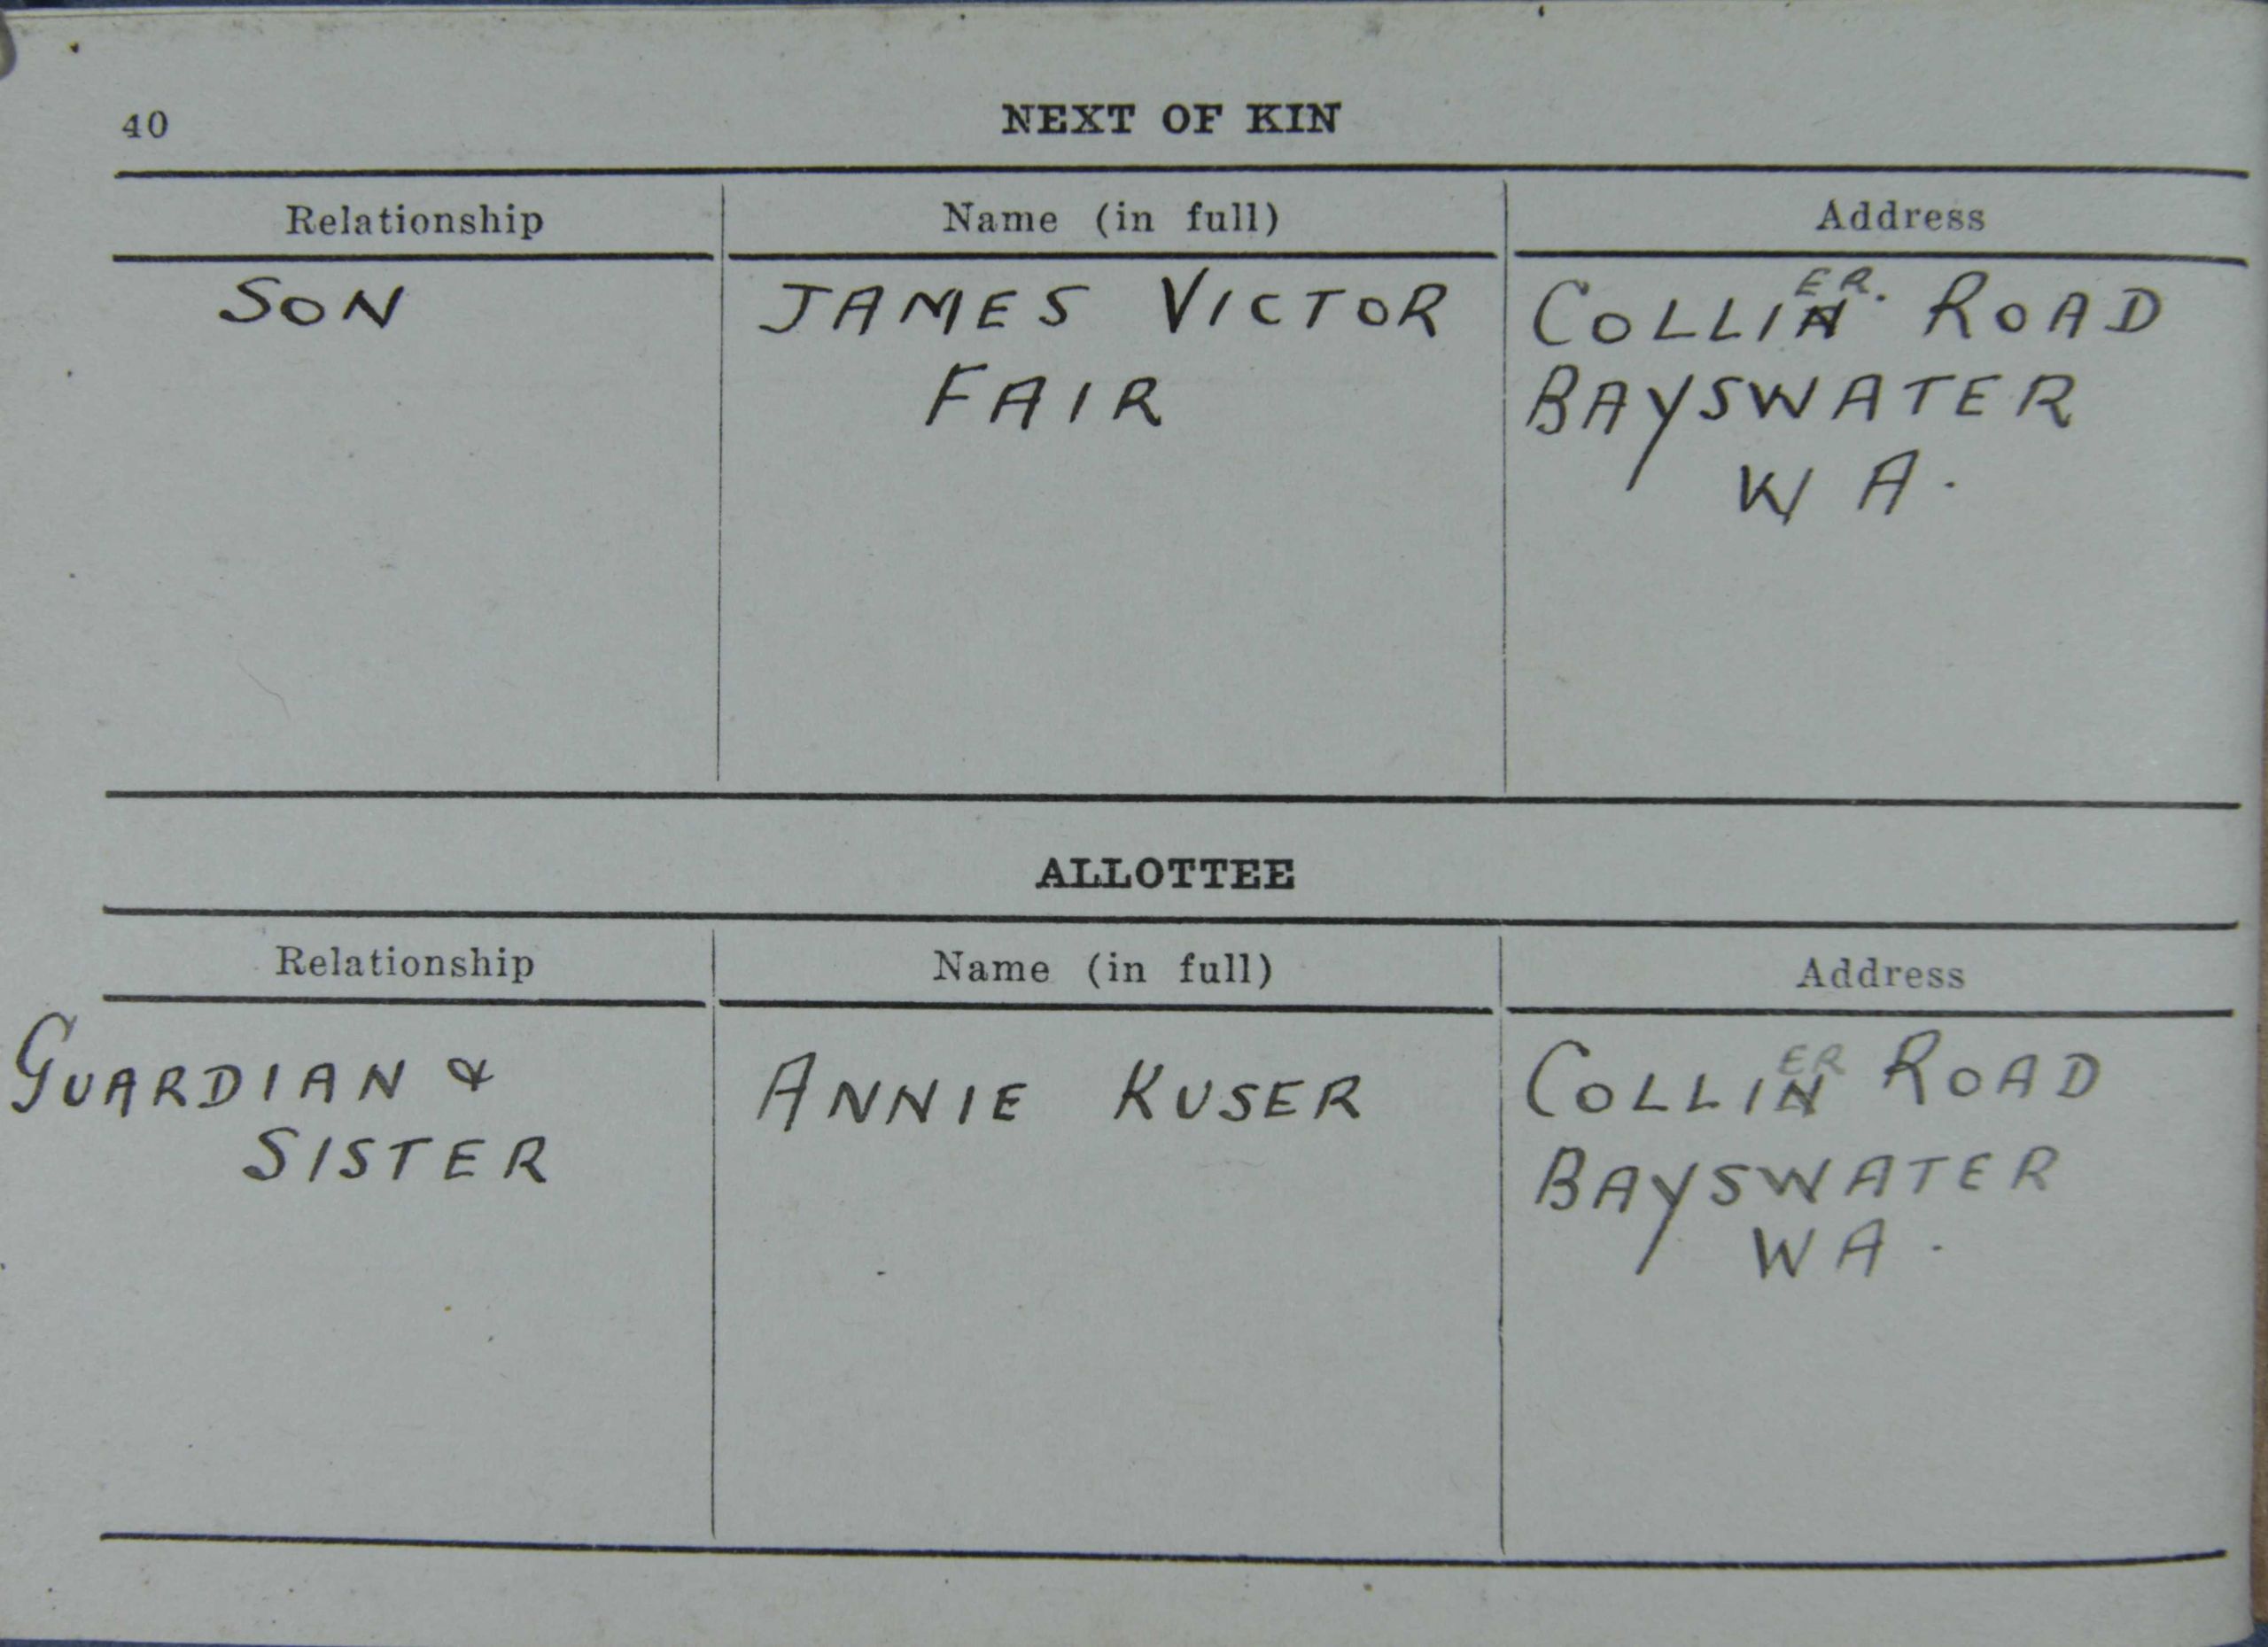 40
NEXT OF KIN
Relationship Name (in full) Address
SON JAMES VICTOR COLLIER. ROAD
FAIR BAYSWATER
W A.
ALLOTTEE
Relationship Name (in full) Address
GUARDIAN & ANNIE KUSER COLLIER ROAD
SISTER BAYSWATER
W A.